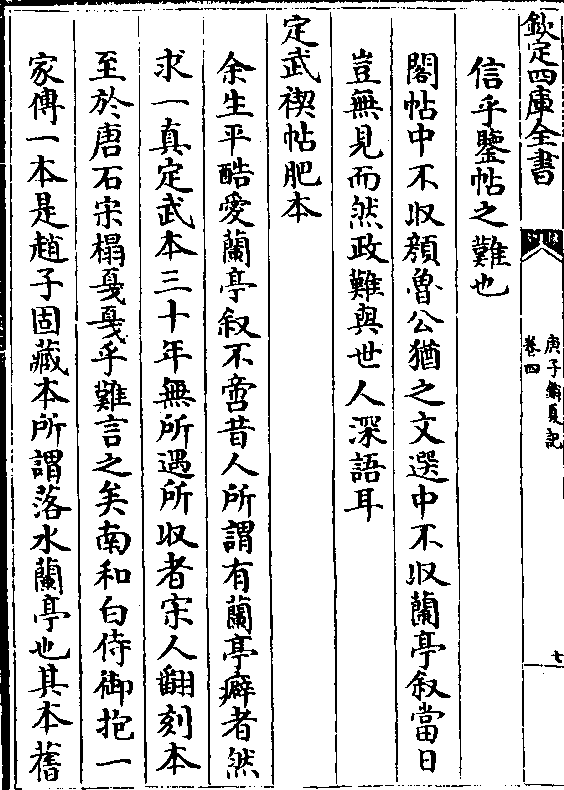 欽定四庫全書
庚子銷夏記
卷四
七
信乎鑒帖之難也
閣帖中不収顔魯公猶之文選中不収蘭亭叙當日
豈無見而然政難與世人深語耳
定武禊帖肥本
余生平酷愛蘭亭叙不啻昔人所謂有蘭亭癖者然
求一真定武本三十年無所遇所収者宋人翻刻本
至於唐石宋榻戛戛乎難言之矣南和白侍御抱一
家傳一本是趙子固藏本所謂落水蘭亭也其本舊